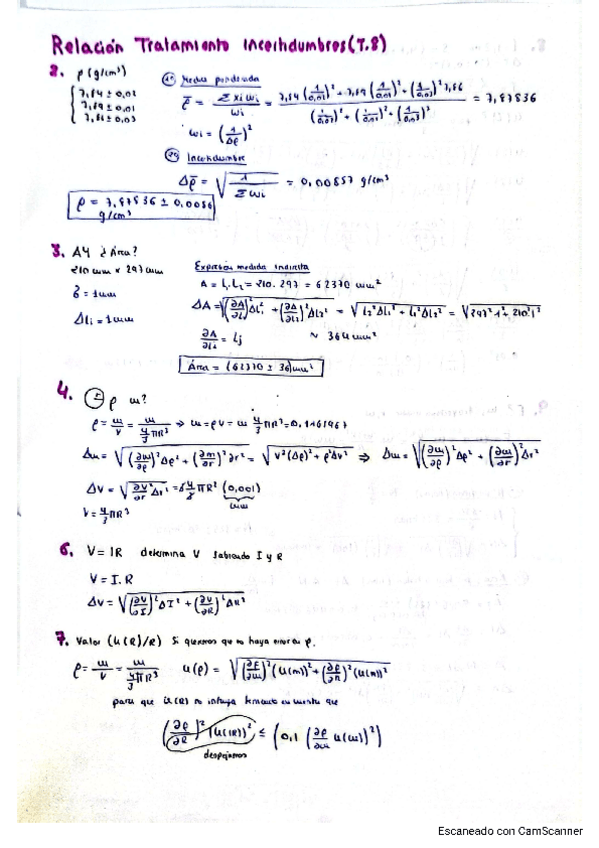 Relación Tratamiento Incertidumbres (T.8)
2. ρ (g/cm³)
7,84 ± 0,02
7,89 ± 0,01
7,86 ± 0,03
1º Media ponderada
ρ̄ = Σ xi wi / wi = (7,84 (1/0,02)² + 7,89 (1/0,01)² + (1/0,03)² 7,86) / ((1/0,02)² + (1/0,01)² + (1/0,03)²) = 7,87836
wi = (1/Δρ)²
2º Incertidumbre
Δρ̄ = √(1/Σwi) = 0,00857 g/cm³
ρ = 7,87836 ± 0,0086 g/cm³
3. A4 ¿Área?
210 mm × 297 mm
Expresión medida indirecta
A = L₁L₂ = 210. 297 = 62370 mm²
δ = 1mm
ΔLi = 1mm
ΔA = √((∂A/∂L₁)² ΔL₁² + (∂A/∂L₂)² ΔL₂²) = √(L₂² ΔL₁² + L₁² ΔL₂²) = √(297² 1² + 210² 1²)
∂A/∂Li = Lj
~ 364 mm²
Área = (62370 ± 36) mm²
4. ρ m?
ρ = m/V = m/(4/3 πR³) ⇒ m = ρV = m 4/3 πR³ = 0,1161967
Δm = √((∂m/∂ρ)² Δρ² + (∂m/∂r)² ∂r²) = √(V²(Δρ)² + ρ² ΔV²) ⇒ Δm = √((∂m/∂ρ)² Δρ² + (∂m/∂r)² Δr²)
ΔV = √(∂V²/∂r Δr²) = πR² (0,001)
1mm
V = 4/3 πR³
6. V = IR determina V sabiendo I y R
V = I. R
ΔV = √((∂V/∂I)² ΔI² + (∂V/∂R)² ΔR²)
7. Valor (u(R)/R) Si queremos que no haya error ρ.
ρ = m/V = m/(4/3 πR³) u(ρ) = √((∂ρ/∂m)² (u(m))² + (∂ρ/∂R)² (u(m))²)
para que u(R) no influya que
(∂ρ/∂R)² (u(R))² ≤ (0,1 (∂ρ/∂m u(m))²)
despejamos
Escaneado con CamScanner